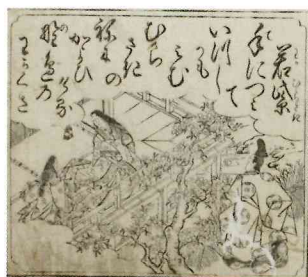 若紫
手につみて
いつしか
も
みむ
むら
さきの
ねに
かよひ
ける
野邊乃
わかくさ